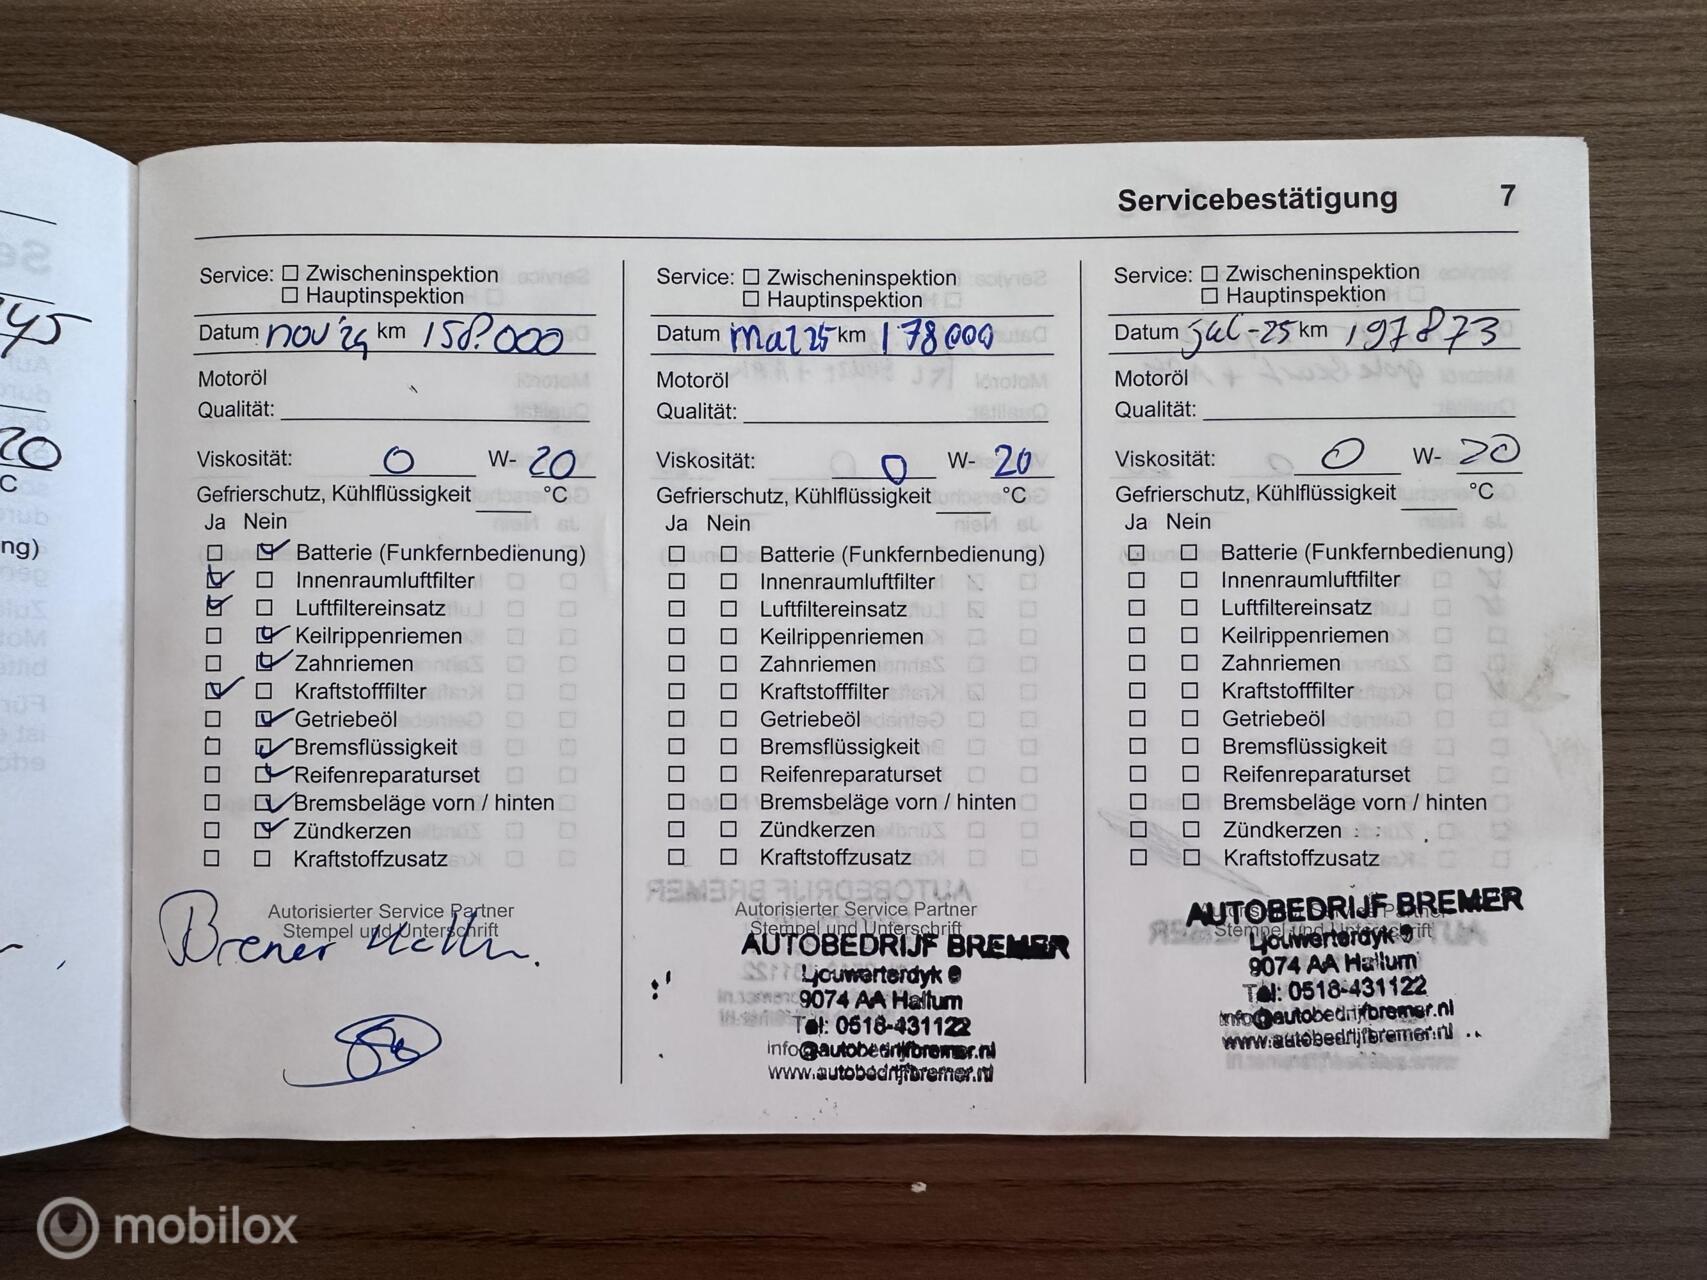 Servicebestätigung 7
Service: Zwischeninspektion
Hauptinspektion
Datum nov '24 km 158.000
Motoröl
Qualität:
Viskosität: 0 W- 20
Gefrierschutz, Kühlflüssigkeit °C
Ja Nein
Batterie (Funkfernbedienung)
Innenraumluftfilter
Luftfiltereinsatz
Keilrippenriemen
Zahnriemen
Kraftstofffilter
Getriebeöl
Bremsflüssigkeit
Reifenreparaturset
Bremsbeläge vorn / hinten
Zündkerzen
Kraftstoffzusatz
Autorisierter Service Partner
Stempel und Unterschrift
Service: Zwischeninspektion
Hauptinspektion
Datum 25 km 178000
Motoröl
Qualität:
Viskosität: 0 W- 20
Gefrierschutz, Kühlflüssigkeit °C
Ja Nein
Batterie (Funkfernbedienung)
Innenraumluftfilter
Luftfiltereinsatz
Keilrippenriemen
Zahnriemen
Kraftstofffilter
Getriebeöl
Bremsflüssigkeit
Reifenreparaturset
Bremsbeläge vorn / hinten
Zündkerzen
Kraftstoffzusatz
Autorisierter Service Partner
Stempel und Unterschrift
AUTOBEDRIJF BREMER
Ljouwerterdyk 9
9074 AA Hallum
Tel: 0518-431122
info@autobedrijfbremer.nl
www.autobedrijfbremer.nl
Service: Zwischeninspektion
Hauptinspektion
Datum jul-25 km 197873
Motoröl
Qualität:
Viskosität: 0 W- 20
Gefrierschutz, Kühlflüssigkeit °C
Ja Nein
Batterie (Funkfernbedienung)
Innenraumluftfilter
Luftfiltereinsatz
Keilrippenriemen
Zahnriemen
Kraftstofffilter
Getriebeöl
Bremsflüssigkeit
Reifenreparaturset
Bremsbeläge vorn / hinten
Zündkerzen
Kraftstoffzusatz
Autorisierter Service Partner
Stempel und Unterschrift
AUTOBEDRIJF BREMER
Ljouwerterdyk 9
9074 AA Hallum
Tel: 0518-431122
info@autobedrijfbremer.nl
www.autobedrijfbremer.nl
45
20
C
ng)
mobilox